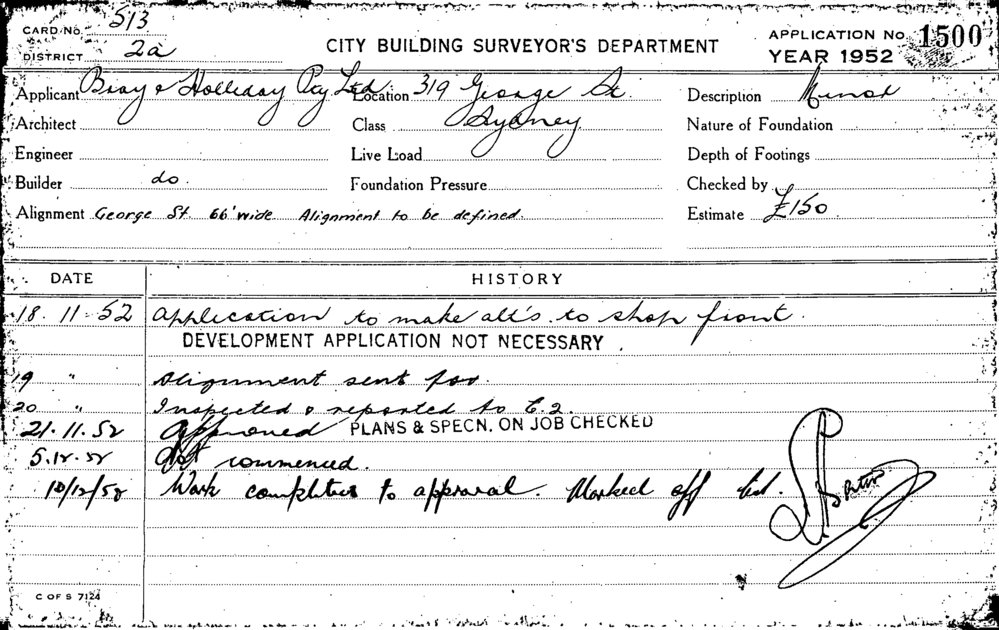 CARD No. 513
DISTRICT 2a
CITY BUILDING SURVEYOR'S DEPARTMENT
APPLICATION No. 1500
YEAR 1952
Applicant Bray & Holliday Pty Ltd Location 319 George St. Description Minor
Architect Class Sydney Nature of Foundation
Engineer Live Load Depth of Footings
Builder do. Foundation Pressure Checked by
Alignment George St. 66' wide Alignment to be defined. Estimate £150
DATE HISTORY
18. 11. 52 Application to make alt's. to shop front.
DEVELOPMENT APPLICATION NOT NECESSARY.
19 " Alignment sent for.
20 " Inspected & reported to C.2.
21. 11. 52 Approved PLANS & SPECN. ON JOB CHECKED
5.12.52 Not commenced.
10/12/52 Work completed to approval. Marked off
C OF S 7124